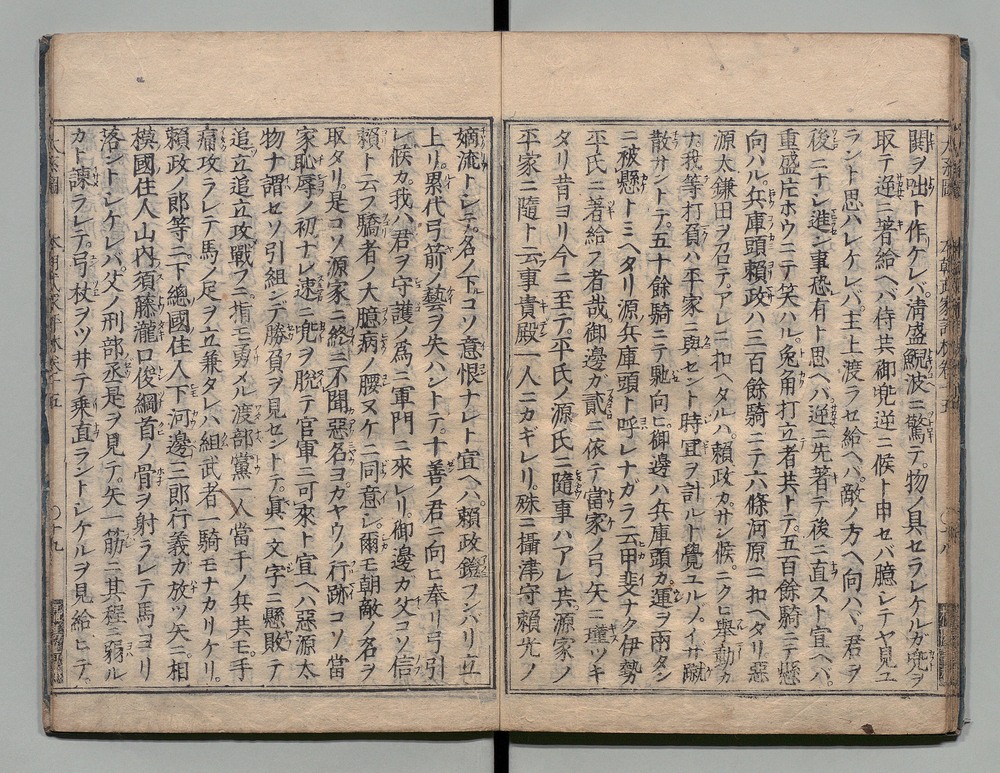 鬨ヲ咄ト作ケレバ清盛鯢波ニ驚テ物ノ具セラレケルガ兜ヲ
取テ逆ニ著給ヘバ侍共御兜逆ニ候ト申セバ臆シテヤ見ユ
ラント思ハレケレバ主上渡ラセ給ヘバ敵ノ方ヘ向ハヾ君ヲ
後ニナシ進ン事恐有ト思ヘハ逆ニ先著テ後ニ直スト宣ヘハ
重盛片ホウニテ笑ハル兎角打立者共トテ五百餘騎ニテ懸
向ハル兵庫頭頼政ハ三百餘騎ニテ六條河原ニ扣ヘタリ惡
源太鎌田ヲ召テアレニ扣ヘタルハ頼政カサン候ニクヒ舉動カ
ナ我等打負ハ平家ニ與セント時宜ヲ計ルト覺ユルソイサ蹴
散サントテ五十餘騎ニテ馳向ヒ御邊ハ兵庫頭カ運ヲ兩タン
ニ被懸トミヘタリ源兵庫頭ト呼レナガラ云甲斐ナク伊勢
平氏ニ著給フ者哉御邊ガ貳ニ依テ當家ノ弓矢ニ瑾ツキ
タリ昔ヨリ今ニ至テ平氏ノ源氏ニ隨事ハアレ共源家ノ
平家ニ隨ト云事貴殿一人ニカギレリ殊ニ攝津守頼光ノ
嫡流トシテ名ノ下コソ意恨ナレト宣ヘハ頼政鐙フンバリ立
上リ累代弓箭ノ藝ヲ失ハントテ十善ノ君ニ向ヒ奉リ弓引
レ候カ我ハ君ヲ守護ノ爲ニ軍門ニ來レリ御邊カ父コソ信
頼ト云フ驕者ノ大臆病ノ腰ヌケニ同意シ爾モ朝敵ノ名ヲ
取タリ是コソ源家ニ終ニ不聞惡名ヨカヤウノ行跡コソ當
家恥辱ノ初ナレ速ニ兜ヲ脱テ官軍ニ可來ト宣ヘハ惡源太
物ナ謂セソ引組ンデ勝負ヲ見セントテ眞一文字ニ懸敗テ
追立追立攻戰フニ指モ勇メル渡部黨一人當千ノ兵共モ手
痛攻ラレテ馬ノ足ヲ立兼タレハ組武者一騎モナカリケリ
頼政ノ郎等ニ下總國ノ住人下河邊三郎行義ガ放ツ矢ニ相
模國住人山内須藤瀧口俊綱首ノ骨ヲ射ラレテ馬ヨリ
落ントシケレバ父ノ刑部丞是ヲ見テ矢一筋ニ其程ニ弱ル
カト諌ラレテ弓杖ヲツ井テ乗直ラントシケルヲ見給ヒテ